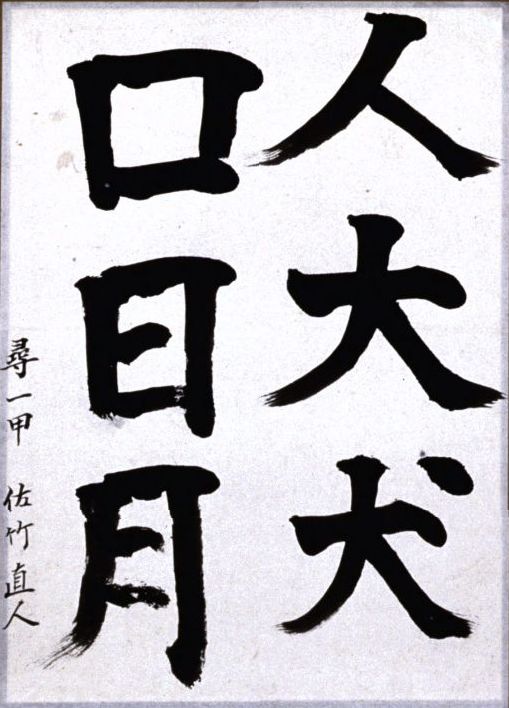 人大犬
口日月
尋一甲 佐竹直人